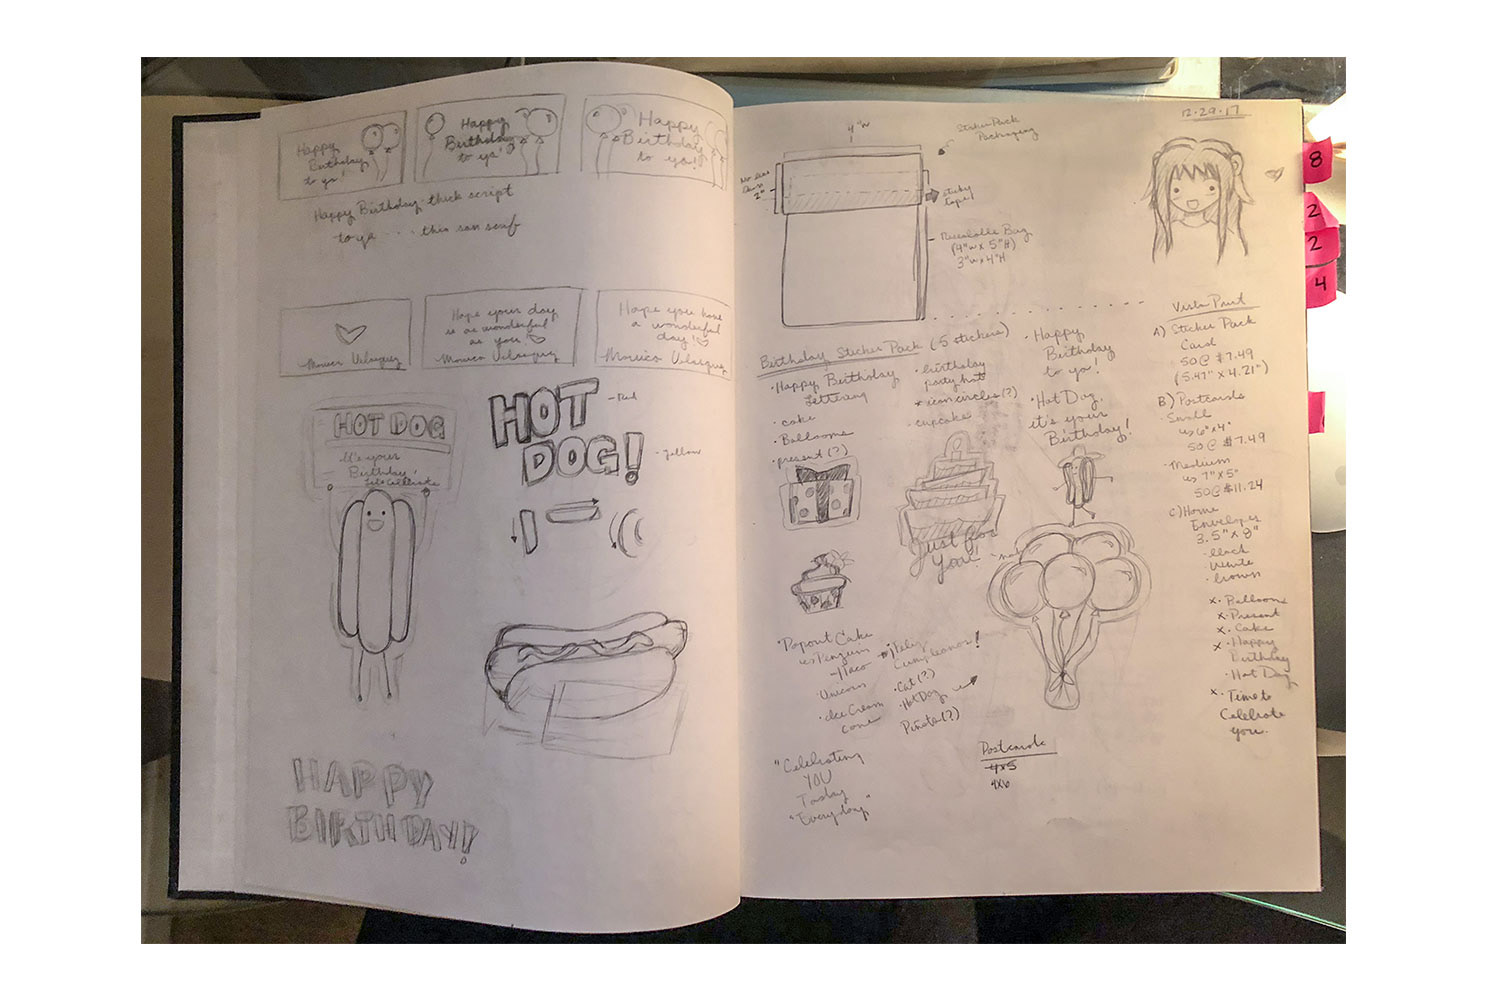 Happy
Birthday
to ya!
Happy
Birthday
to ya!
Happy
Birthday
to you!
Happy Birthday thick script
to ya . . . thin san serif
Monica Velasquez
Hope your day
is as wonderful
as you!
Monica Velasquez
Hope you have
a wonderful
day!
Monica Velasquez
HOT DOG
It's your
Birthday!
Let's Celebrate
HOT
DOG!
Red
yellow
HAPPY
BIRTHDAY!
12.29.17
4"W
Sticker Pack
Packaging
2"
sticky
tape
Resealable Bag
(4"W x 5"H)
3"W x 4"H
Birthday Sticker Pack (5 stickers)
· Happy Birthday
Lettering
· cake
· Balloons
· present (?)
· birthday
party hat
* icon circles (?)
· cupcake
· Happy
Birthday
to ya!
· Hot Dog,
it's your
Birthday!
Just for
You!
· Popout Cake
w/ Penguin
- Taco
· Unicorn
· Ice Cream
cone
· Feliz
Cumpleanos!
· Cat (?)
· Hot Dog
Piñata (?)
"Celebrating
YOU
Today
"Everyday"
Postcards
4x5
4x6
Vista Print
A) Sticker Pack
Card
50 @ $7.49
(5.47" x 4.21")
B) Postcards
· Small
6" x 4"
50 @ $7.49
· Medium
7" x 5"
50 @ $11.24
C) Home
Envelopes
3.5" x 8"
· black
· White
· brown
x · Balloons
x · Present
x · Cake
x · Happy
Birthday
· Hot Dog
x · Time to
Celebrate
you.
8
2
2
4